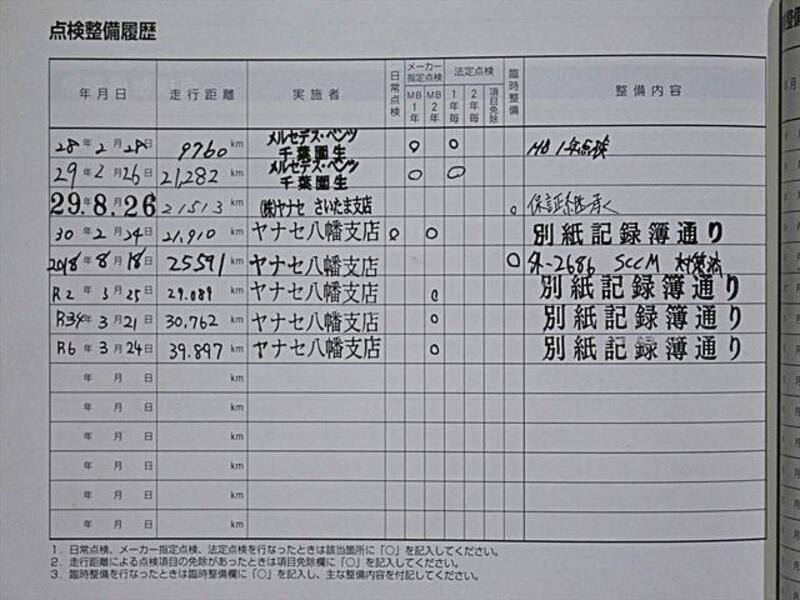 点検整備履歴
年月日 走行距離 実施者 日常点検 メーカー指定点検 MB1年 MB2年 法定点検 1年毎 2年毎 項目免除 臨時整備 整備内容
28年2月28日 9760km メルセデス・ベンツ 千葉園生 ○ ○ MB1年点検
29年2月26日 21,282km メルセデス・ベンツ 千葉園生 ○ ○
29.8.26 21513km (株)ヤナセ さいたま支店 ○ 保証継承
30年2月24日 21,910km ヤナセ八幡支店 ○ ○ 別紙記録簿通り
2018年8月18日 25591km ヤナセ八幡支店 ○ 外-2686 SCCM 対策済
R2年3月25日 29.089km ヤナセ八幡支店 ○ 別紙記録簿通り
年3月21日 30,762km ヤナセ八幡支店 ○ 別紙記録簿通り
R6年3月24日 39.897km ヤナセ八幡支店 ○ 別紙記録簿通り
年 月 日 km
年 月 日 km
年 月 日 km
年 月 日 km
年 月 日 km
年 月 日 km
1. 日常点検、メーカー指定点検、法定点検を行なったときは該当箇所に「○」を記入してください。
2. 走行距離による点検項目の免除があったときは項目免除欄に「○」を記入してください。
3. 臨時整備を行なったときは臨時整備欄に「○」を記入し、主な整備内容を付記してください。